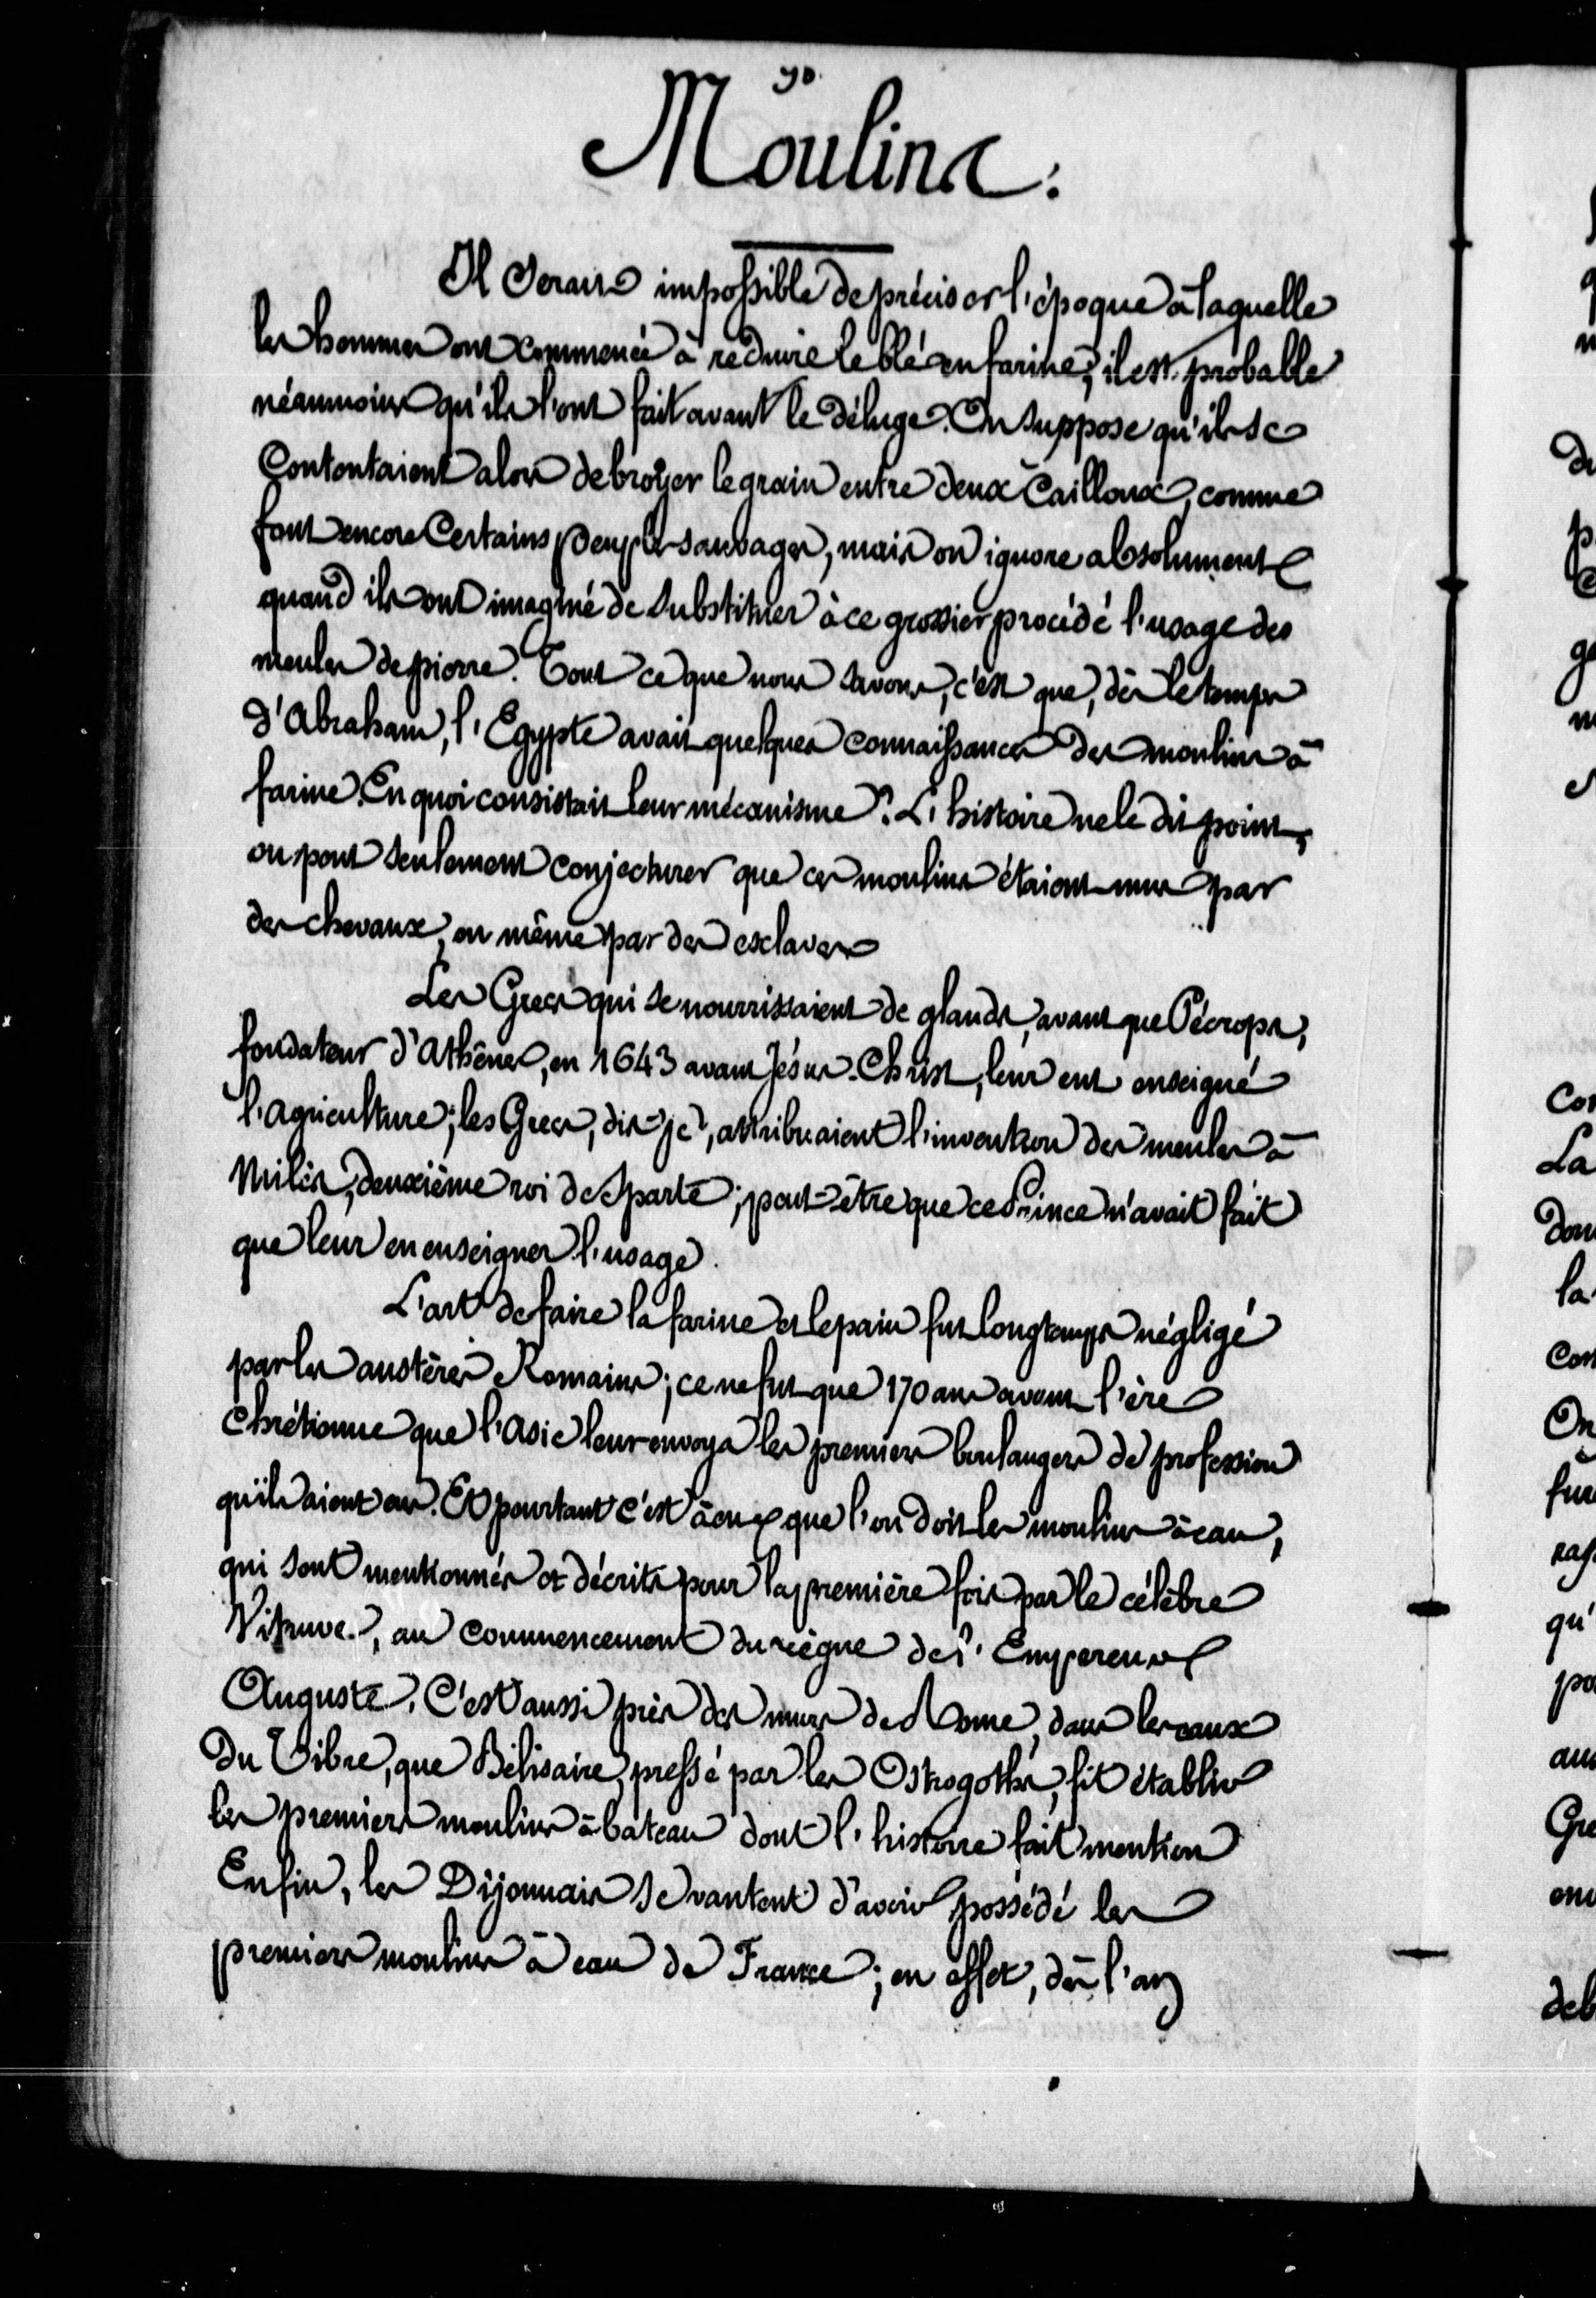 Moulins.
Il serait impossible de préciser l'époque à laquelle
les hommes ont commencé à réduire le blé en farine; il est probable
néanmoins qu'ils l'ont fait avant le déluge. On suppose qu'ils se
Contentaient alors de broyer le grain entre deux Cailloux, comme
font encore Certains peuples sauvages, mais on ignore absolument
quand ils ont imaginé de substituer à ce grossier procédé l'usage des
meules de pierre. Tout ce que nous savons, c'est que, dès le temps
d'Abraham, l'Egypte avait quelques connaissances des moulins à
farine. En quoi consistait leur mécanisme? L'histoire ne le dit point;
on peut seulement conjecturer que ces moulins étaient mus par
des chevaux, ou même par des esclaves
Les Grecs qui se nourrissaient de glands, avant que Cécrops,
fondateur d'Athènes, en 1643 avant Jésus-Christ, leur eut enseigné
l'agriculture; les Grecs, dis-je, attribuaient l'invention des meules à
Milès, deuxième roi de Sparte; peut-être que ce Prince n'avait fait
que leur en enseigner l'usage.
L'art de faire la farine et le pain fut longtemps négligé
par les austères Romains; ce ne fut que 170 ans avant l'ère
Chrétienne que l'Asie leur envoya les premiers boulangers de profession
qu'ils aient eus. Et pourtant c'est à eux que l'on doit les moulins à eau,
qui sont mentionnés et décrits pour la première fois par le célèbre
Vitruve, au commencement du règne de l'Empereur
Auguste. C'est aussi près des murs de Rome, dans les eaux
du Tibre, que Bélisaire, pressé par les Ostrogoths, fit établir
les premiers moulins à bateau dont l'histoire fait mention
Enfin, les Dijonnais se vantent d'avoir possédé les
premiers moulins à eau de France; en effet, dès l'an